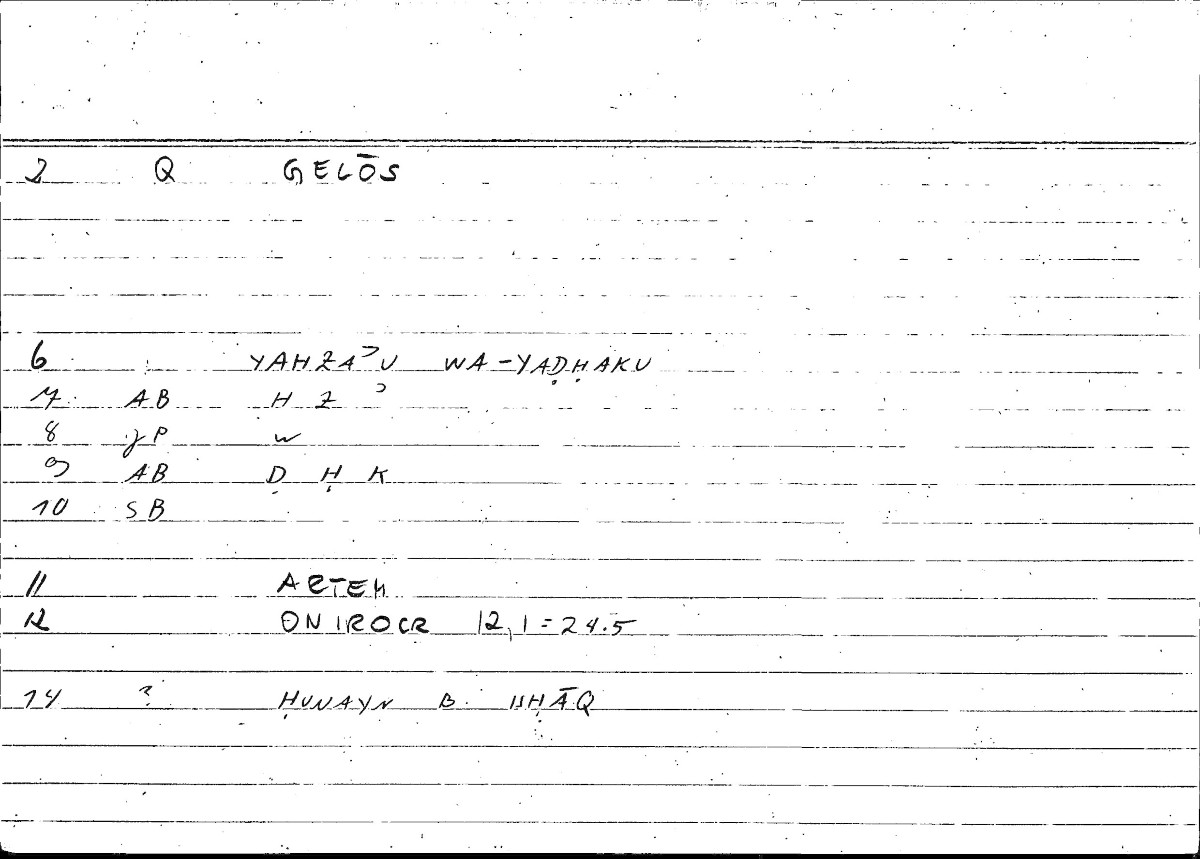 2 Q GELŌS
6 YAHZAʾU WA-YAḌḤAKU
7 AB H Z ʾ
8 JP W
9 AB Ḍ Ḥ K
10 SB
11 ARTEM
12 ONIROCR 12,1=24.5
14 ? ḤUNAYN B. ISḤĀQ